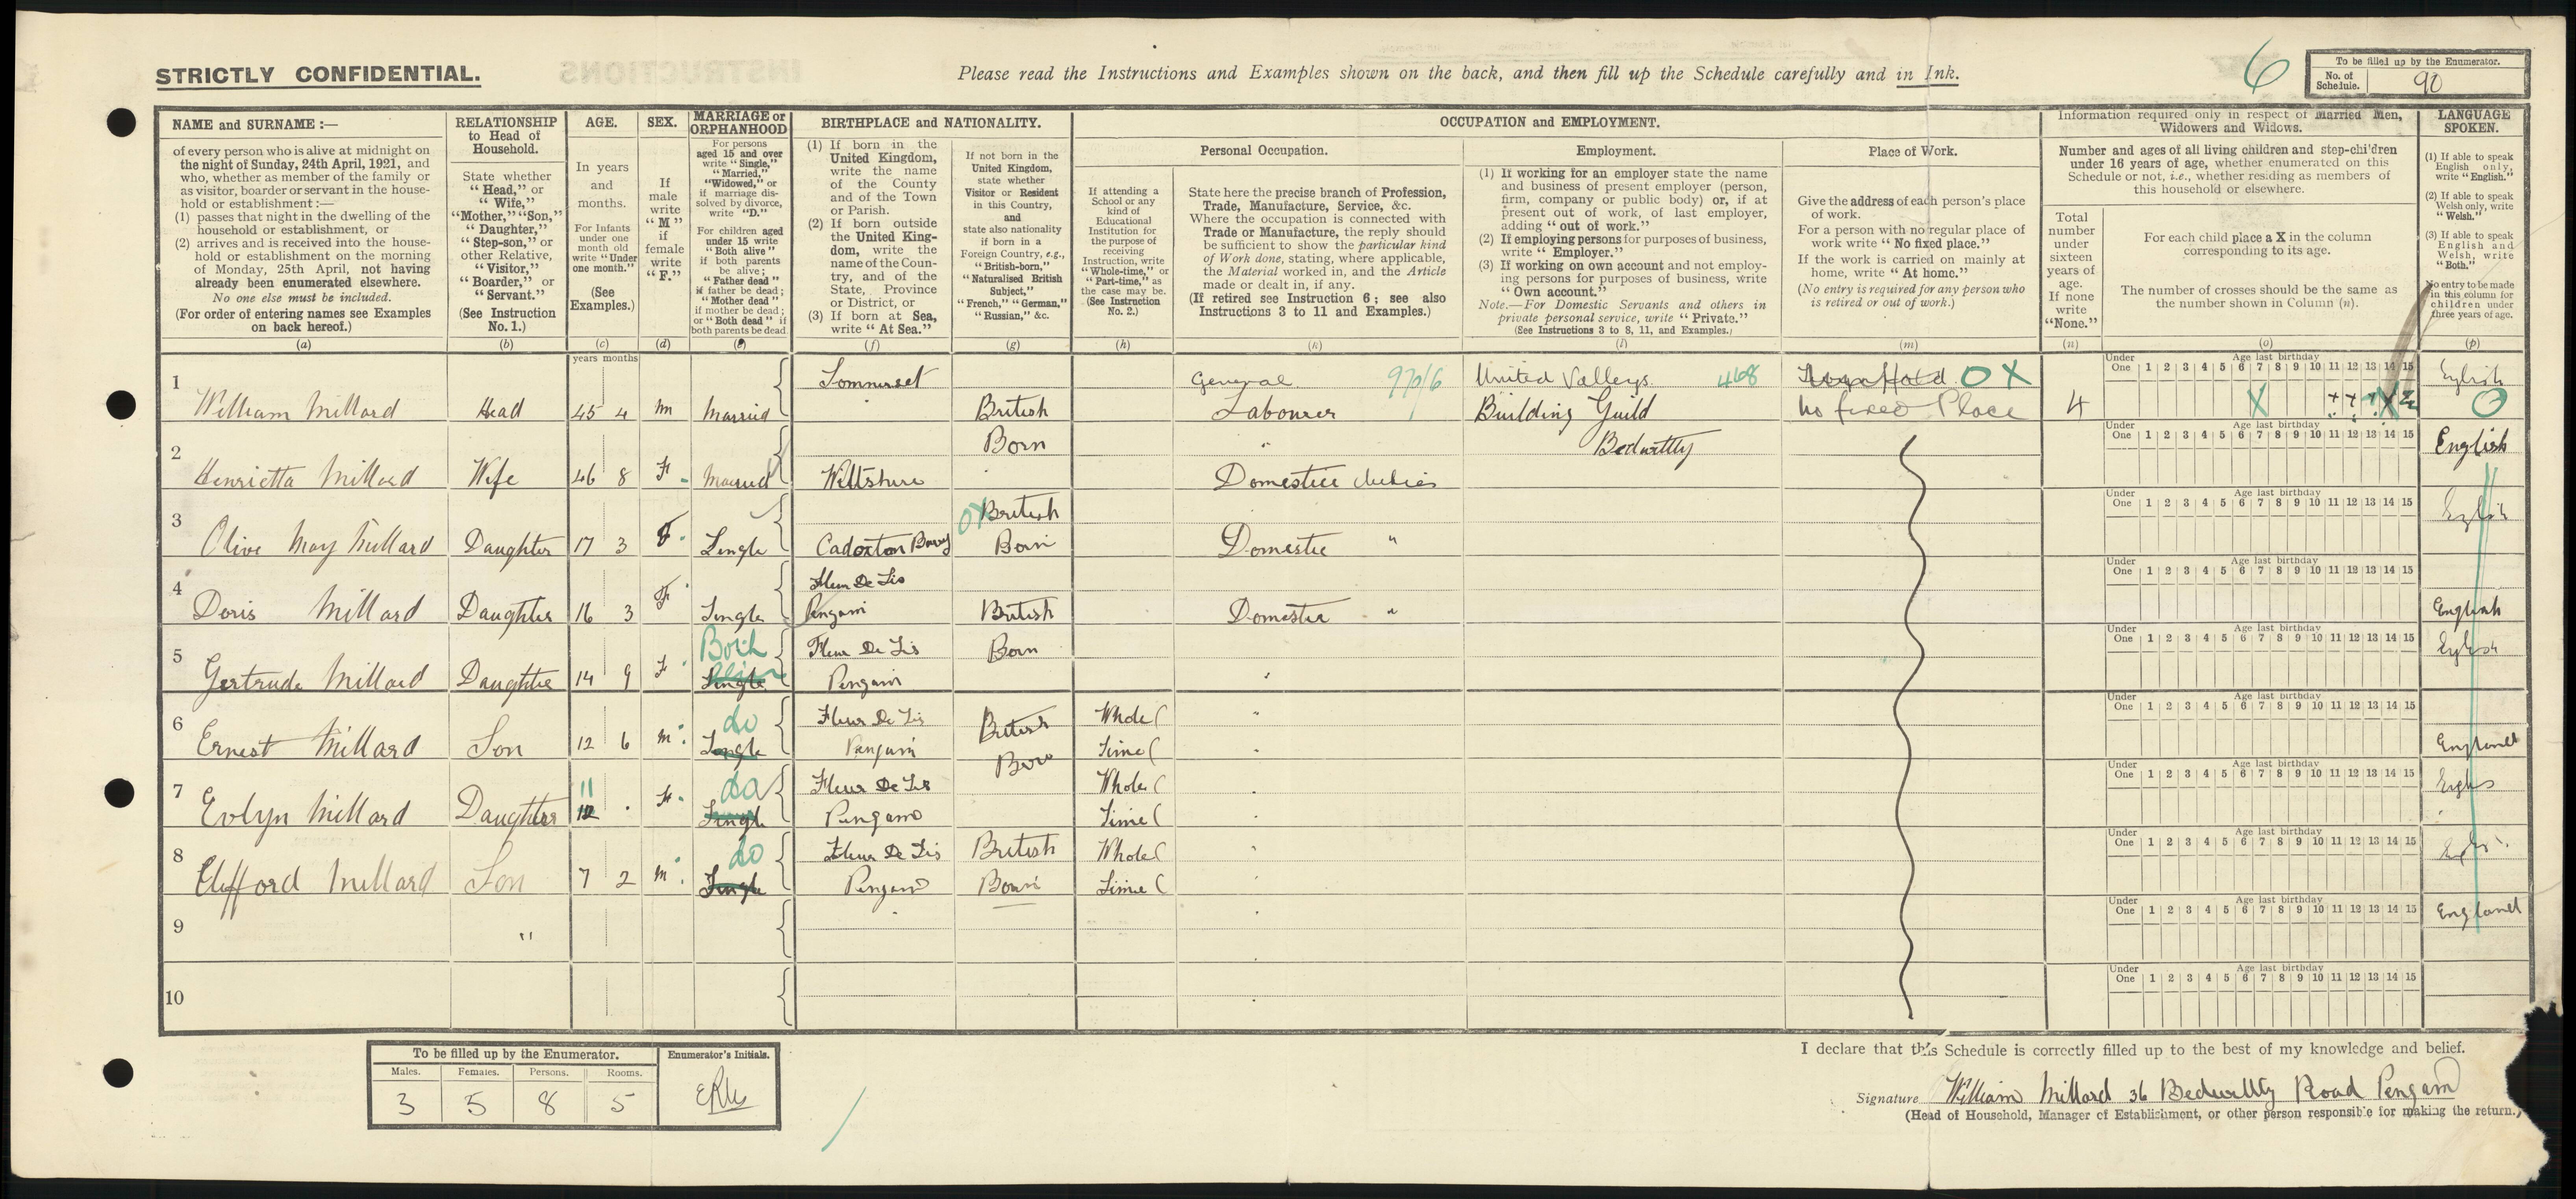 STRICTLY CONFIDENTIAL.
Please read the Instructions and Examples shown on the back, and then fill up the Schedule carefully and in Ink.
6
To be filled up by the Enumerator.
No. of Schedule. 90
NAME and SURNAME :—
of every person who is alive at midnight on
the night of Sunday, 24th April, 1921, and
who, whether as member of the family or
as visitor, boarder or servant in the house-
hold or establishment :—
(1) passes that night in the dwelling of the
household or establishment, or
(2) arrives and is received into the house-
hold or establishment on the morning
of Monday, 25th April, not having
already been enumerated elsewhere.
No one else must be included.
(For order of entering names see Examples
on back hereof.)
(a)
RELATIONSHIP
to Head of
Household.
State whether
"Head," or
"Wife,"
"Mother," "Son,"
"Daughter,"
"Step-son," or
other Relative,
"Visitor,"
"Boarder," or
"Servant."
(See Instruction
No. 1.)
(b)
AGE.
In years
and
months.
For Infants
under one
month old
write "Under
one month."
(See
Examples.)
(c)
SEX.
If
male
write
"M"
if
female
write
"F."
(d)
MARRIAGE or
ORPHANHOOD
For persons
aged 15 and over
write "Single,"
"Married,"
"Widowed," or
if marriage dis-
solved by divorce,
write "D."
For children aged
under 15 write
"Both alive"
if both parents
be alive;
"Father dead"
if father be dead;
"Mother dead"
if mother be dead;
or "Both dead" if
both parents be dead.
(e)
BIRTHPLACE and NATIONALITY.
(1) If born in the
United Kingdom,
write the name
of the County
and of the Town
or Parish.
(2) If born outside
the United King-
dom, write the
name of the Coun-
try, and of the
State, Province
or District, or
(3) If born at Sea,
write "At Sea."
(f)
If not born in the
United Kingdom,
state whether
Visitor or Resident
in this Country,
and
state also nationality
if born in a
Foreign Country, e.g.,
"British-born,"
"Naturalised British
Subject,"
"French," "German,"
"Russian," &c.
(g)
OCCUPATION and EMPLOYMENT.
Personal Occupation.
If attending a
School or any
kind of
Educational
Institution for
the purpose of
receiving
Instruction, write
"Whole-time," or
"Part-time," as
the case may be.
(See Instruction
No. 2.)
(h)
State here the precise branch of Profession,
Trade, Manufacture, Service, &c.
Where the occupation is connected with
Trade or Manufacture, the reply should
be sufficient to show the particular kind
of Work done, stating, where applicable,
the Material worked in, and the Article
made or dealt in, if any.
(If retired see Instruction 6; see also
Instructions 3 to 11 and Examples.)
(k)
Employment.
(1) If working for an employer state the name
and business of present employer (person,
firm, company or public body) or, if at
present out of work, of last employer,
adding "out of work."
(2) If employing persons for purposes of business,
write "Employer."
(3) If working on own account and not employ-
ing persons for purposes of business, write
"Own account."
Note.—For Domestic Servants and others in
private personal service, write "Private."
(See Instructions 3 to 8, 11, and Examples.)
(l)
Place of Work.
Give the address of each person's place
of work.
For a person with no regular place of
work write "No fixed place."
If the work is carried on mainly at
home, write "At home."
(No entry is required for any person who
is retired or out of work.)
(m)
Information required only in respect of Married Men,
Widowers and Widows.
Number and ages of all living children and step-children
under 16 years of age, whether enumerated on this
Schedule or not, i.e., whether residing as members of
this household or elsewhere.
Total
number
under
sixteen
years of
age.
If none
write
"None."
(n)
For each child place a X in the column
corresponding to its age.
The number of crosses should be the same as
the number shown in Column (n).
(o)
LANGUAGE
SPOKEN.
(1) If able to speak
English only,
write "English."
(2) If able to speak
Welsh only, write
"Welsh."
(3) If able to speak
English and
Welsh, write
"Both."
No entry to be made
in this column for
children under
three years of age.
(p)
years months
Under One 1 2 3 4 5 6 7 8 9 10 11 12 13 14 15
Age last birthday
1 William Millard Head 45 4 m Married Sommerset British General Labourer 970/6 United Valleys 468 Building Guild Bedwellty No fixed Place O X 4 English
2 Henrietta Millard Wife 46 8 F Married Wiltshire Born Domestic duties English
3 Olive May Millard Daughter 17 3 F Single Cadoxton Barry British Born Domestic " English
4 Doris Millard Daughter 16 3 F Single Fleur De Lis Pengam British Domestic " English
5 Gertrude Millard Daughter 14 9 F Single Both Alive Fleur De Lis Pengam Born English
6 Ernest Millard Son 12 6 m Single do Fleur De Lis Pengam British Born Whole Time
7 Evlyn Millard Daughter 12 11 F Single do Fleur De Lis Pengam Whole Time
8 Clifford Millard Son 7 2 m Single do Fleur De Lis Pengam British Born Whole Time
9 "
10
To be filled up by the Enumerator.
Males. Females. Persons. Rooms.
3 5 8 5
Enumerator's Initials.
I declare that this Schedule is correctly filled up to the best of my knowledge and belief.
Signature William Millard 36 Bedwellty Road Pengam
(Head of Household, Manager of Establishment, or other person responsible for making the return.)